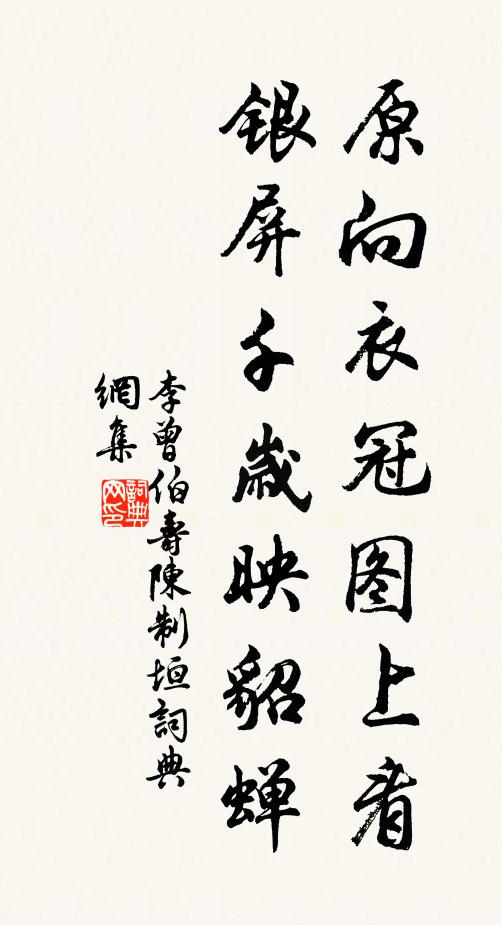 原向衣冠图上看
银屏千歳映貂蝉
李曾伯壽陳制垣詞典
網集
詞典
网印